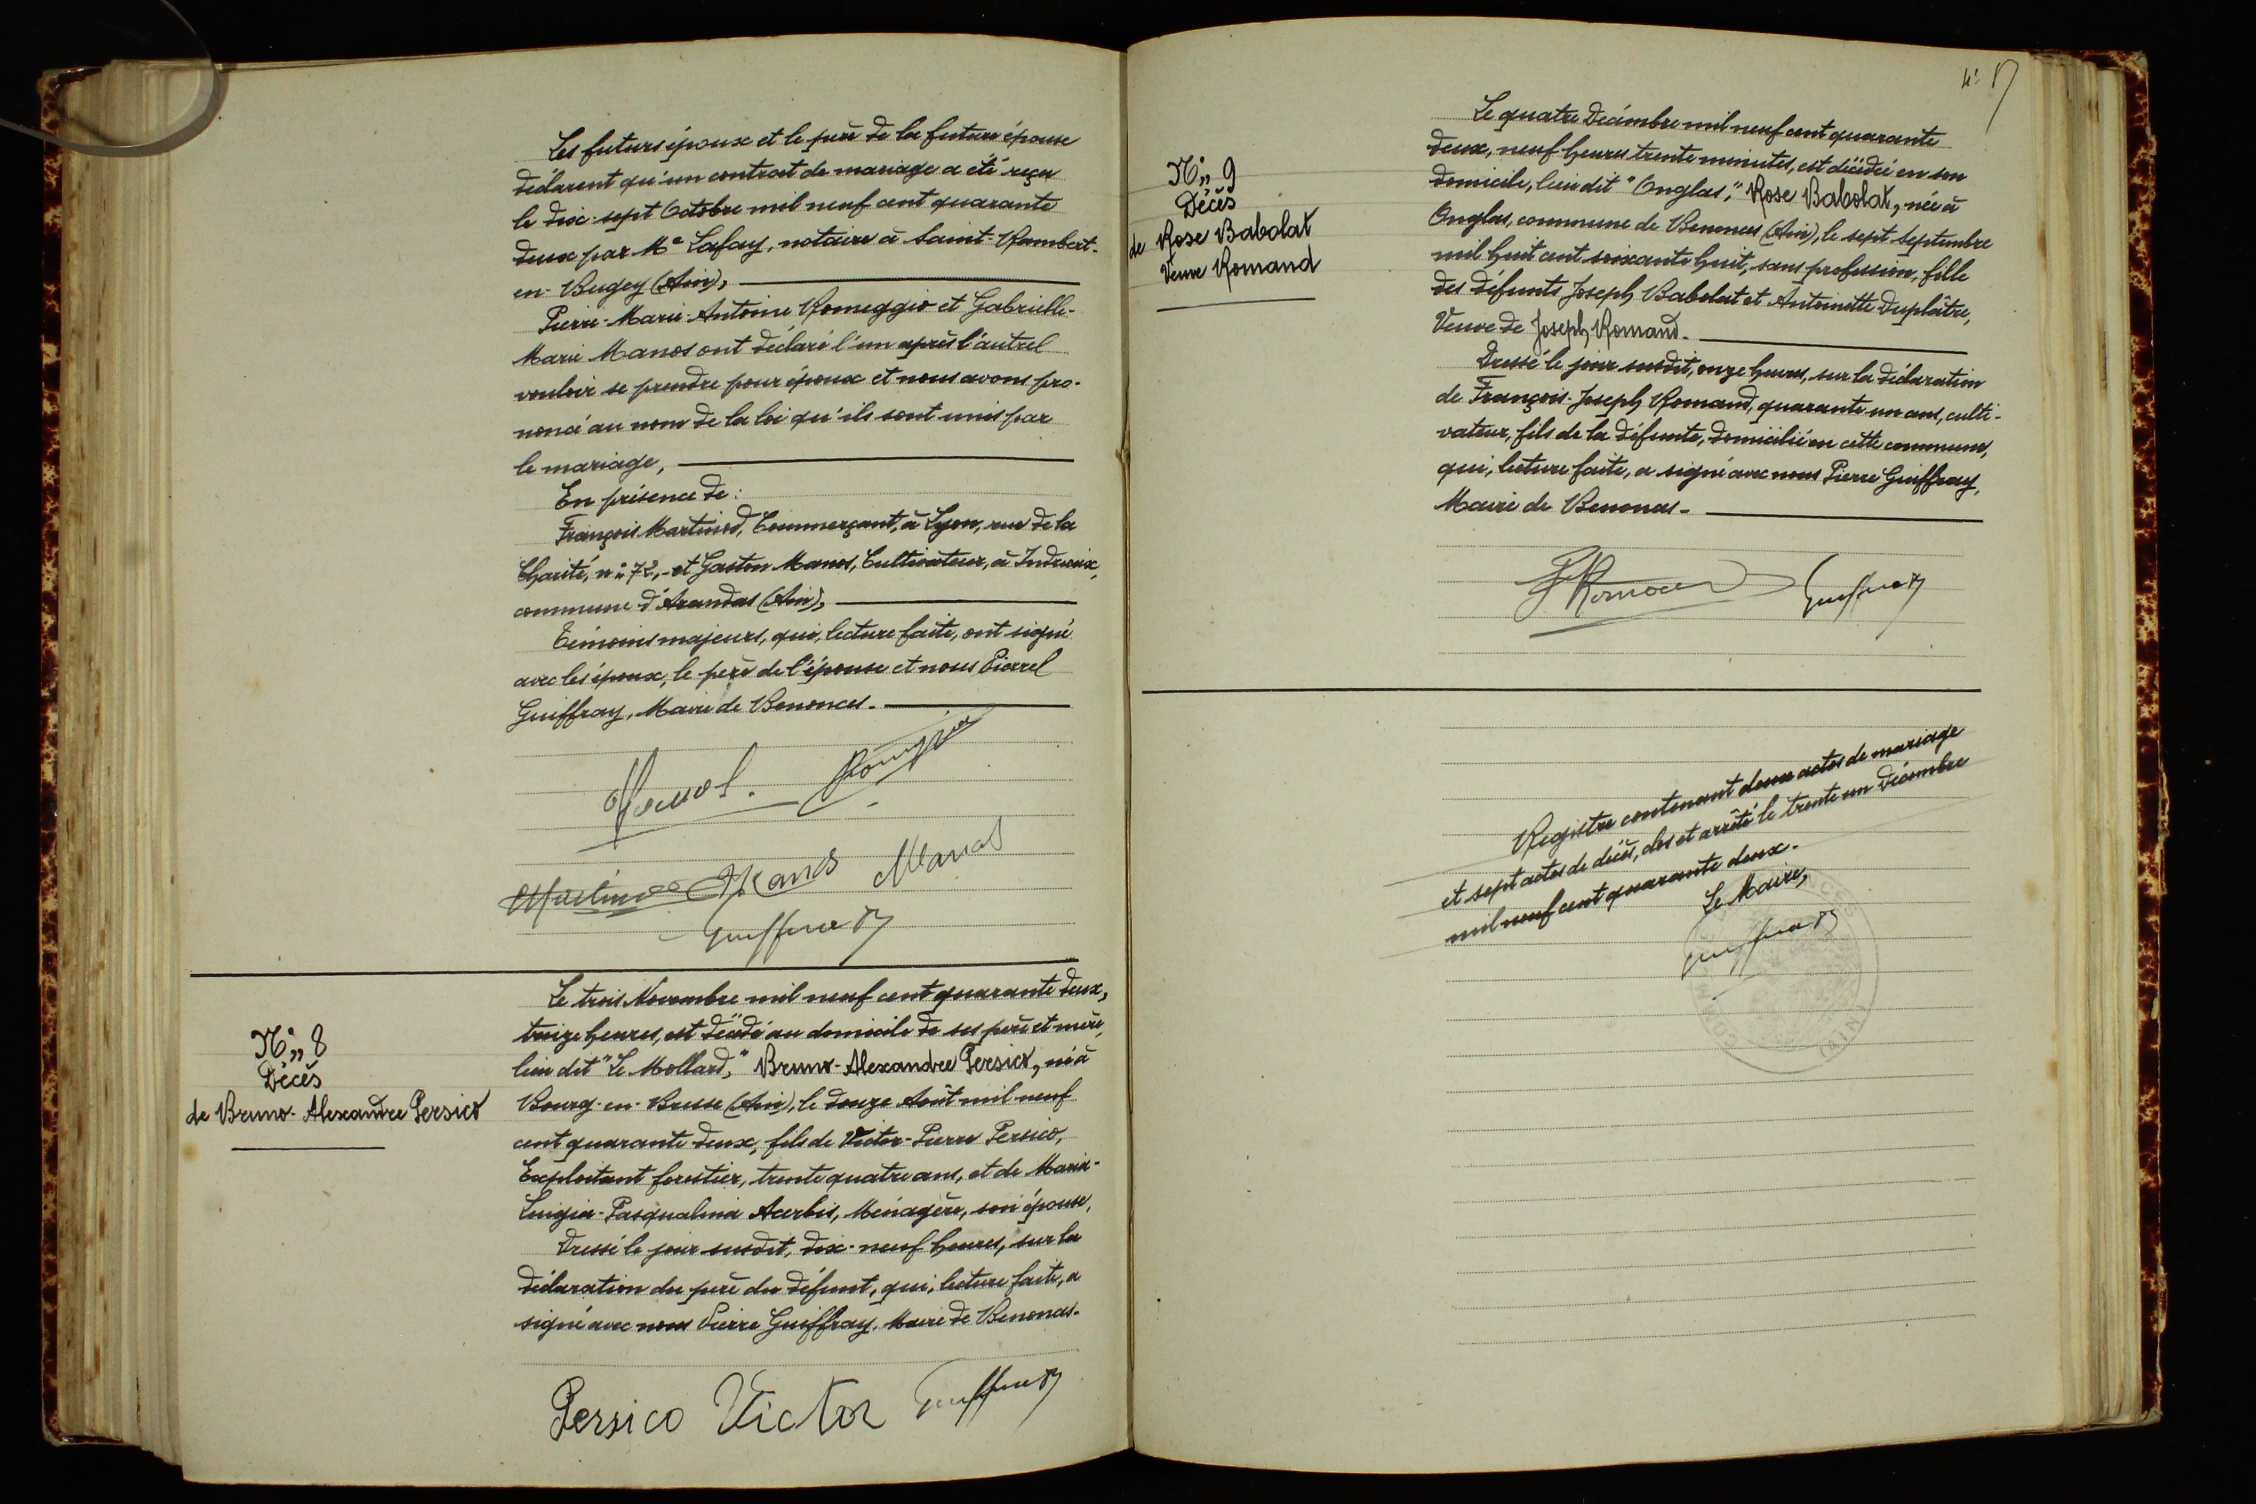 Les futurs époux et le père de la future épouse
déclarent qu'un contrat de mariage a été reçu
le dix-sept Octobre mil neuf cent quarante
deux par Me Lafay, notaire à Saint-Rambert-
en-Bugey (Ain),
Pierre-Marie-Antoine Romeggio et Gabrielle-
Marie Manos ont déclaré l'un après l'autre
vouloir se prendre pour époux et nous avons pro-
noncé au nom de la loi qu'ils sont unis par
le mariage,
En présence de :
François Martinod, Commerçant, à Lyon, rue de la
Charité, n° 72, et Gaston Manos, Cultivateur, à Indrieux,
commune d'Arandas (Ain),
Témoins majeurs, qui, lecture faite, ont signé
avec les époux, le père de l'épouse et nous Pierre
Guiffray, Maire de Benonces.
Manos
Martinod Manos Manos
Guiffray
N° 8
Décès
de Bruno-Alexandre Persico
Le trois Novembre mil neuf cent quarante deux,
treize heures, est décédé au domicile de ses père et mère,
lieu dit "Le Mollard," Bruno-Alexandre Persico, né à
Bourg-en-Bresse (Ain), le douze Août mil neuf
cent quarante deux, fils de Victor-Pierre Persico,
Exploitant forestier, trente quatre ans, et de Maria-
Luigia-Pasqualina Acerbis, Ménagère, son épouse,
Dressé le jour susdit, dix-neuf heures, sur la
déclaration du père du défunt, qui, lecture faite, a
signé avec nous Pierre Guiffray, Maire de Benonces.
Persico Victor Guiffray
N° 9
Décès
de Rose Babolat
Veuve Romand
Le quatre Décembre mil neuf cent quarante
deux, neuf heures trente minutes, est décédée en son
domicile, lieu dit "Onglas," Rose Babolat, née à
Onglas, commune de Benonces (Ain), le sept Septembre
mil huit cent soixante huit, sans profession, fille
des défunts Joseph Babolat et Antoinette Duplâtre,
Veuve de Joseph Romand.
Dressé le jour susdit, onze heures, sur la déclaration
de François-Joseph Romand, quarante un ans, culti-
vateur, fils de la défunte, domicilié en cette commune,
qui, lecture faite, a signé avec nous Pierre Guiffray,
Maire de Benonces.
Romand Guiffray
Registre contenant deux actes de mariage
et sept actes de décès, clos et arrêté le trente un Décembre
mil neuf cent quarante deux.
Le Maire,
Guiffray
(AIN)